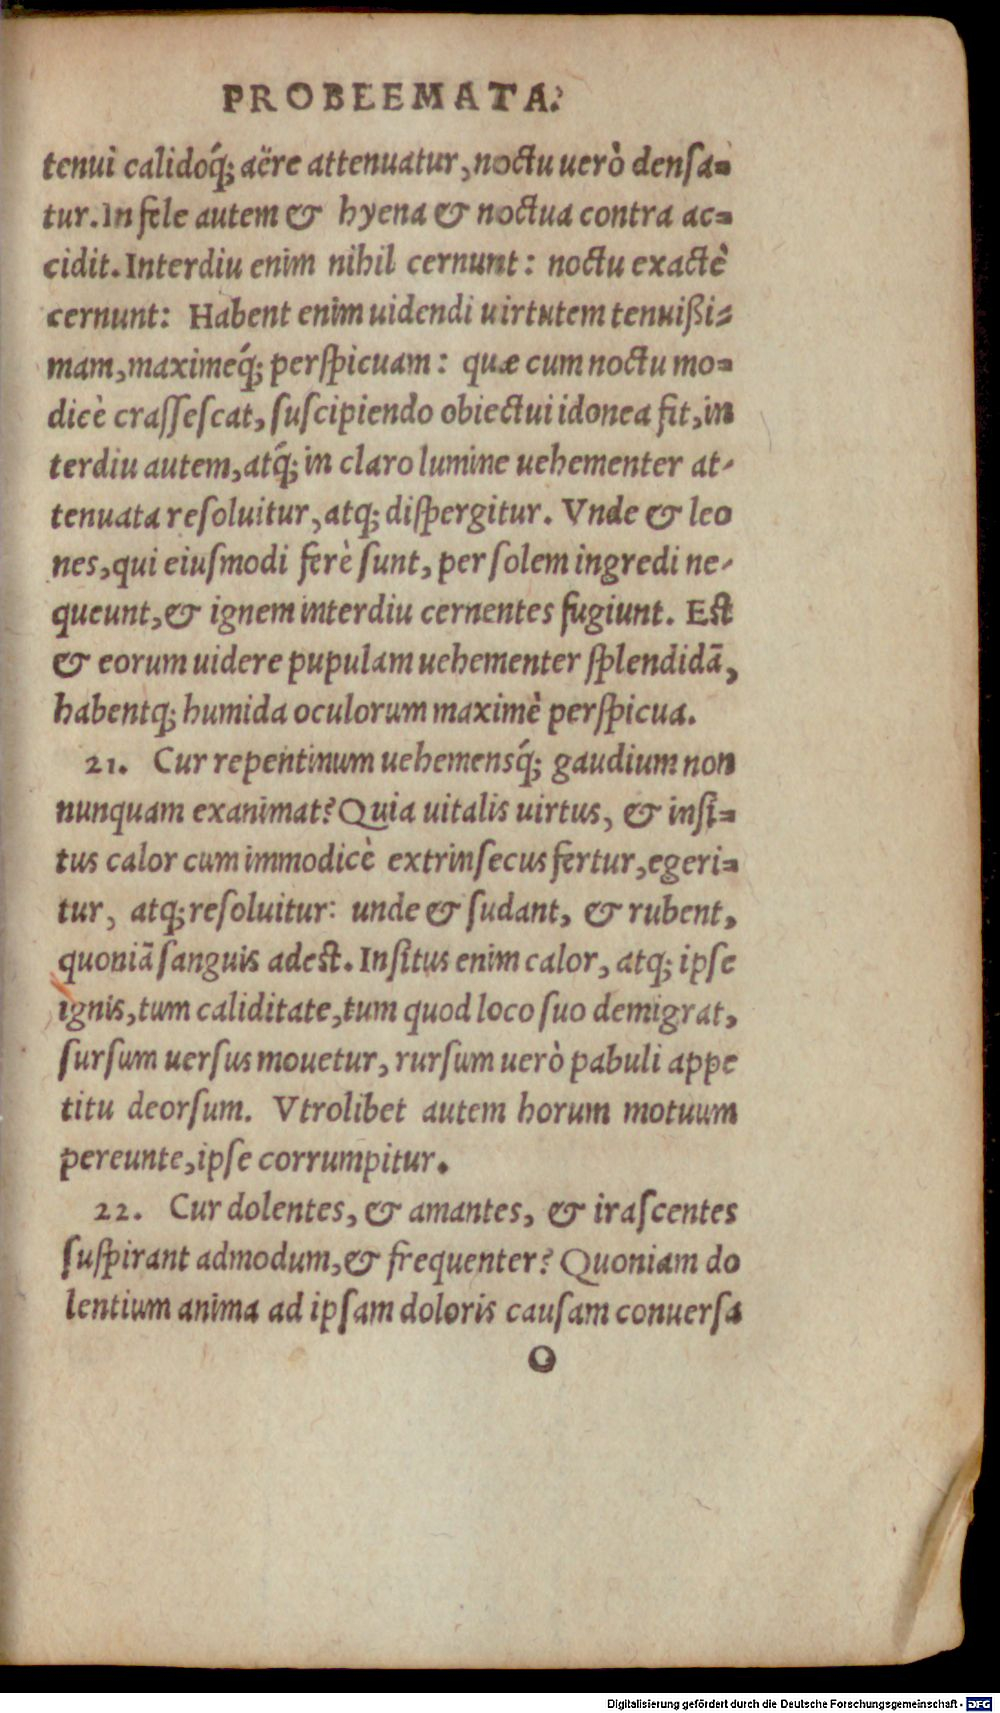 PROBLEMATA.
tenui calidoq́; aëre attenuatur, noctu uerò densa-
tur. In fele autem & hyena & noctua contra ac-
cidit. Interdiu enim nihil cernunt: noctu exactè
cernunt: Habent enim uidendi uirtutem tenuißi-
mam, maximeq́; perspicuam: quæ cum noctu mo-
dicè crassescat, suscipiendo obiectui idonea fit, in
terdiu autem, atq́; in claro lumine uehementer at-
tenuata resoluitur, atq; dispergitur. Vnde & leo
nes, qui eiusmodi ferè sunt, per solem ingredi ne-
queunt, & ignem interdiu cernentes fugiunt. Est
& eorum uidere pupulam uehementer splendidā,
habentq; humida oculorum maximè perspicua.
21. Cur repentinum uehemensq́; gaudium non
nunquam exanimat? Quia uitalis uirtus, & insi-
tus calor cum immodicè extrinsecus fertur, egeri-
tur, atq; resoluitur: unde & sudant, & rubent,
quoniā sanguis adest. Insitus enim calor, atq; ipse
ignis, tum caliditate, tum quod loco suo demigrat,
sursum uersus mouetur, rursum uerò pabuli appe
titu deorsum. Vtrolibet autem horum motuum
pereunte, ipse corrumpitur.
22. Cur dolentes, & amantes, & irascentes
suspirant admodum, & frequenter? Quoniam do
lentium anima ad ipsam doloris causam conuersa
O
Digitalisierung gefördert durch die Deutsche Forschungsgemeinschaft - DFG